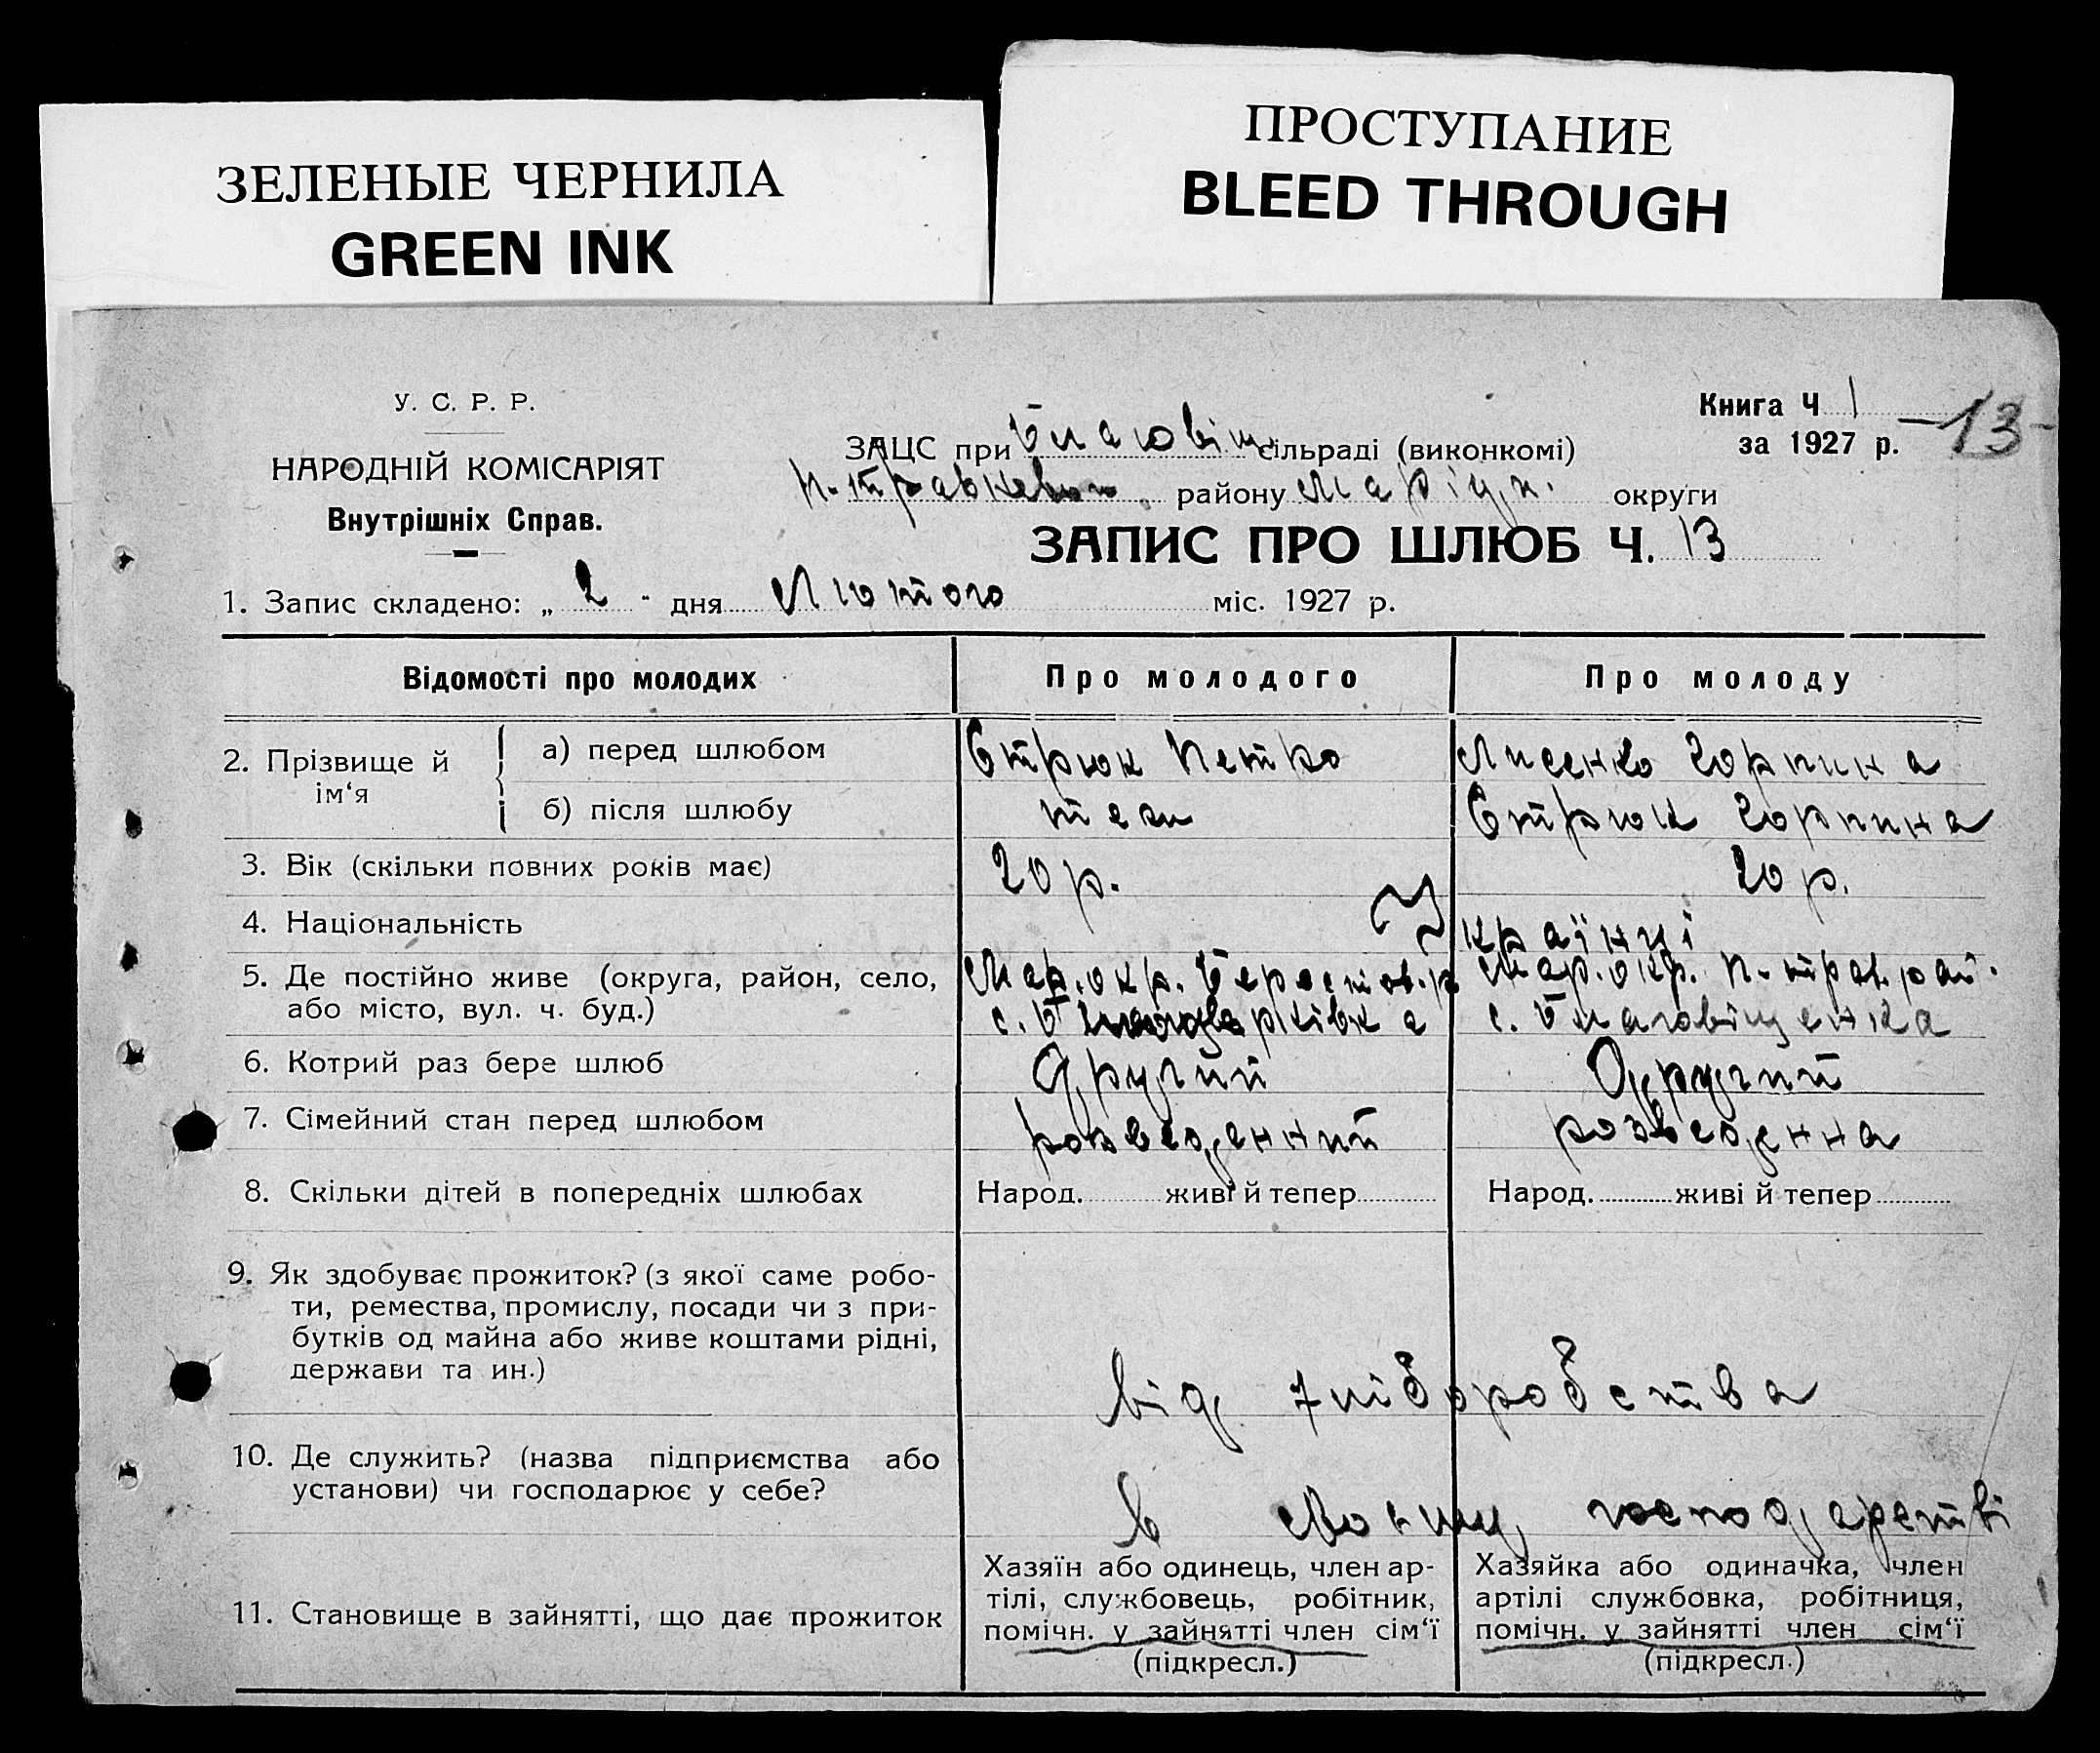 ЗЕЛЕНЫЕ ЧЕРНИЛА
GREEN INK
ПРОСТУПАНИЕ
BLEED THROUGH
У. С. Р. Р.
НАРОДНІЙ КОМІСАРІЯТ
Внутрішніх Справ.
Книга Ч 1
за 1927 р. -13-
ЗАЦС при Благовіщ. сільраді (виконкомі)
району Маріуп. округи
ЗАПИС ПРО ШЛЮБ Ч. 13
1. Запис складено: „ 2 " дня Лютого міс. 1927 р.
Відомості про молодих Про молодого Про молоду
2. Прізвище й ім‘я
а) перед шлюбом Стрюк Петро Лисенко Горпина
б) після шлюбу теж Стрюк Горпина
3. Вік (скільки повних років має) 20 р. 20 р.
4. Національність Українці
5. Де постійно живе (округа, район, село, Мар. окр. Берестов. р Мар. окр. П-трав. рай.
або місто, вул. ч. буд.) с. с. Благовіщенка
6. Котрий раз бере шлюб Другий Другий
7. Сімейний стан перед шлюбом розведенний розведенна
8. Скільки дітей в попередніх шлюбах Народ. живі й тепер Народ. живі й тепер
9. Як здобуває прожиток? (з якої саме робо-
ти, ремества, промислу, посади чи з при-
бутків од майна або живе коштами рідні,
держави та ин.) від хліборобства
10. Де служить? (назва підприємства або
установи) чи господарює у себе? в господарстві
11. Становище в зайнятті, що дає прожиток
Хазяїн або одинець, член ар-
тілі, службовець, робітник,
помічн. у зайнятті член сім‘ї
(підкресл.)
Хазяйка або одиначка, член
артілі службовка, робітниця,
помічн. у зайнятті член сім‘ї
(підкресл.)